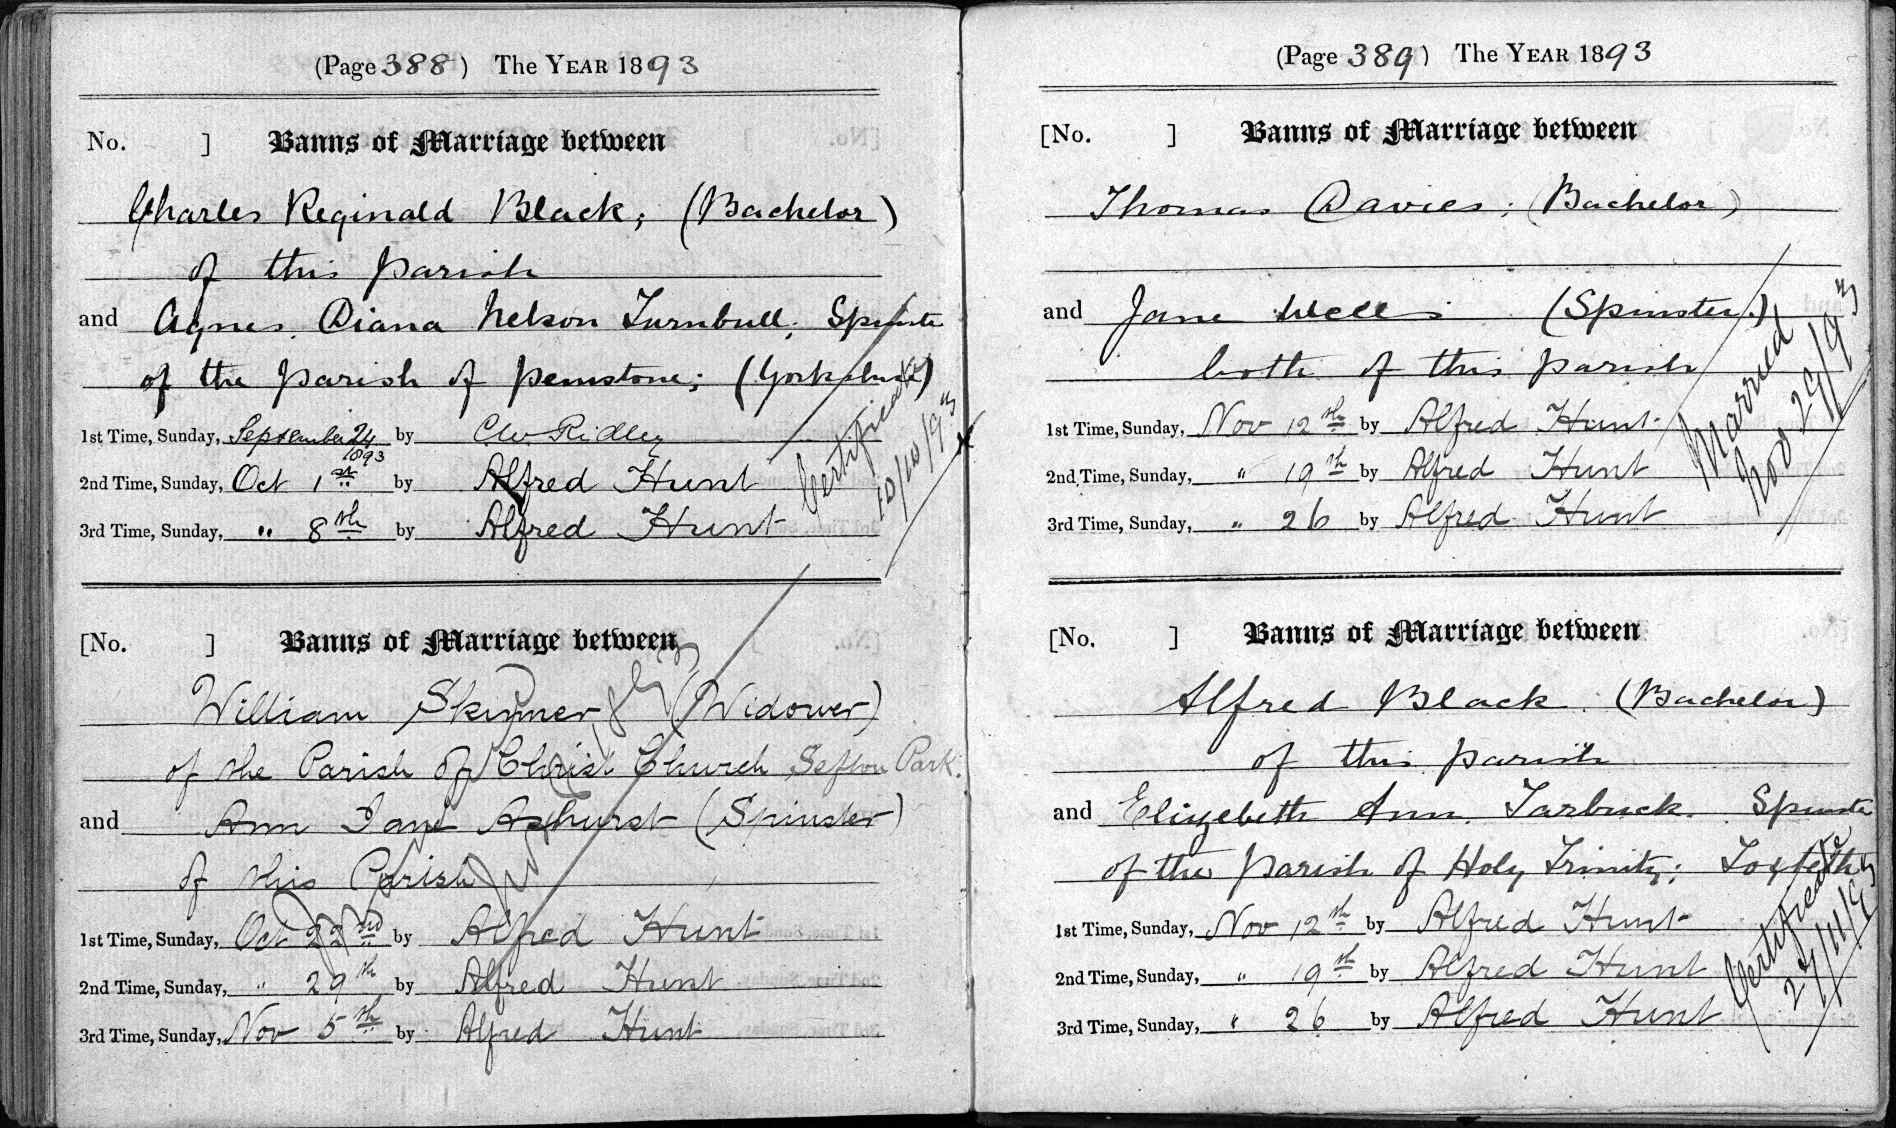 (Page 388) The YEAR 1893
No. ] Banns of Marriage between
Charles Reginald Black; (Bachelor)
of this parish
and Agnes Diana Nelson Turnbull; Spinster
of the parish of Penistone; (Yorkshire)
1st Time, Sunday, September 24 1893 by C.W. Ridley
2nd Time, Sunday, Oct 1st by Alfred Hunt
3rd Time, Sunday, " 8th by Alfred Hunt
Certificate
10/10/93
[No. ] Banns of Marriage between
William Skinner (Widower)
of the Parish of Christ Church Sefton Park.
and Ann Jane Ashurst (Spinster)
of this Parish
1st Time, Sunday, Oct 22nd by Alfred Hunt
2nd Time, Sunday, " 29th by Alfred Hunt
3rd Time, Sunday, Nov 5th by Alfred Hunt
(Page 389) The YEAR 1893
[No. ] Banns of Marriage between
Thomas Davies; (Bachelor)
and Jane Wells (Spinster)
both of this parish
1st Time, Sunday, Nov 12th by Alfred Hunt
2nd Time, Sunday, " 19th by Alfred Hunt
3rd Time, Sunday, " 26 by Alfred Hunt
Married
Nov 29/93
[No. ] Banns of Marriage between
Alfred Black (Bachelor)
of this parish
and Elizebeth Ann Tarbuck. Spinster
of the parish of Holy Trinity; Toxteth
1st Time, Sunday, Nov 12th by Alfred Hunt
2nd Time, Sunday, " 19th by Alfred Hunt
3rd Time, Sunday, " 26 by Alfred Hunt
Certificate
27/11/93